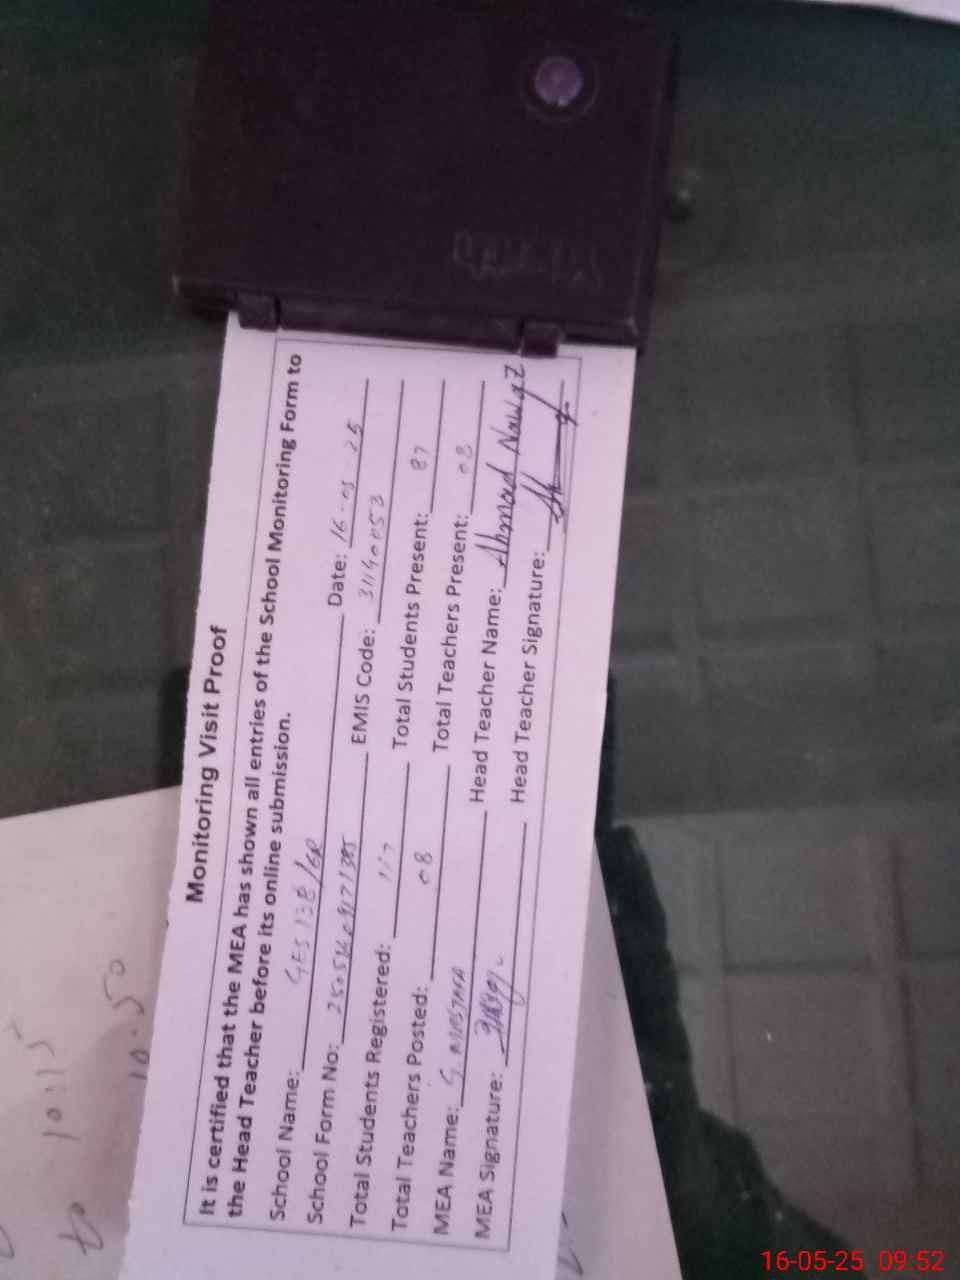 Monitoring Visit Proof
It is certified that the MEA has shown all entries of the School Monitoring Form to
the Head Teacher before its online submission.
School Name: GES 138/6R Date: 16-05-25
School Form No: EMIS Code: 31140053
Total Students Registered: 117 Total Students Present: 87
Total Teachers Posted: 08 Total Teachers Present: 08
MEA Name: G. MUSTAFA Head Teacher Name: Ahmad Nawaz
MEA Signature: Head Teacher Signature:
to 10:15
10:50
16-05-25 09:52